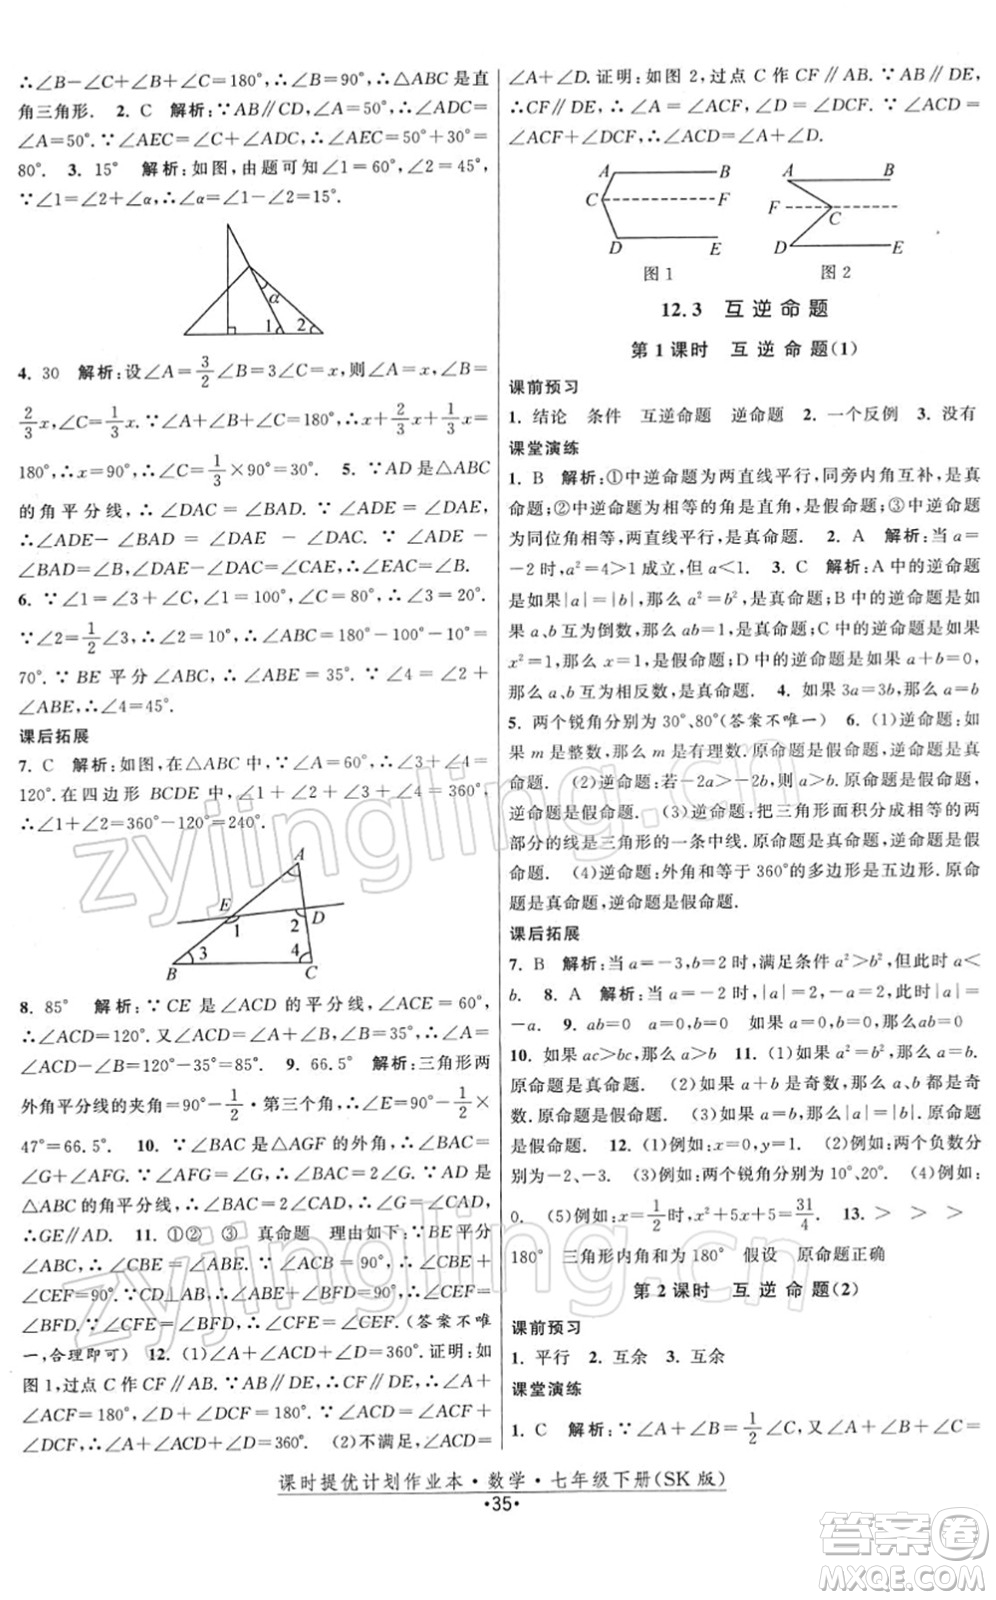 ∴∠B-∠C+∠B+∠C=180°,∴∠B=90°,∴△ABC是直
角三角形. 2. C 解析:∵AB∥CD,∠A=50°,∴∠ADC=
∠A=50°.∵∠AEC=∠C+∠ADC,∴∠AEC=50°+30°=
80°. 3. 15° 解析:如图,由题可知∠1=60°,∠2=45°.
∵∠1=∠2+∠α,∴∠α=∠1-∠2=15°.
α
1
2
4. 30 解析:设∠A=3/2∠B=3∠C=x,则∠A=x,∠B=
2/3x,∠C=1/3x.∵∠A+∠B+∠C=180°,∴x+2/3x+1/3x=
180°,∴x=90°,∴∠C=1/3×90°=30°. 5. ∵AD是∠BAC
的角平分线,∴∠DAC=∠BAD.∵∠ADE=∠DAE,
∴∠ADE-∠BAD=∠DAE-∠DAC.∵∠ADE-
∠BAD=∠B,∠DAE-∠DAC=∠CAE,∴∠CAE=∠B.
6. ∵∠1=∠3+∠C,∠1=100°,∠C=80°,∴∠3=20°.
∵∠2=1/2∠3,∴∠2=10°,∴∠ABC=180°-100°-10°=
70°.∵BE平分∠ABC,∴∠ABE=35°.∵∠4=∠2+
∠ABE,∴∠4=45°.
课后拓展
7. C 解析:如图,在△ABC中,∵∠A=60°,∴∠3+∠4=
120°.在四边形BCDE中,∵∠1+∠2+∠3+∠4=360°,
∴∠1+∠2=360°-120°=240°.
A
E
D
1
2
3
4
B
C
8. 85° 解析:∵CE是∠ACD的平分线,∠ACE=60°,
∴∠ACD=120°.又∵∠ACD=∠A+∠B,∠B=35°,∴∠A=
∠ACD-∠B=120°-35°=85°. 9. 66.5° 解析:三角形两
外角平分线的夹角=90°-1/2·第三个角,∴∠E=90°-1/2×
47°=66.5°. 10. ∵∠BAC是△AGF的外角,∴∠BAC=
∠G+∠AFG.∵∠AFG=∠G,∴∠BAC=2∠G.∵AD是
△ABC的角平分线,∴∠BAC=2∠DAC,∴∠G=∠DAC,
∴GE∥AD. 11. ①② ③ 真命题 理由如下:∵BE平分
∠ABC,∴∠CBE=∠ABE.∵∠BCE=90°,∴∠CBE+
∠CEF=90°.∵CD⊥AB,∴∠ABE+∠BFD=90°,∴∠CEF=
∠BFD.∵∠CFE=∠BFD,∴∠CFE=∠CEF.(答案不唯
一,合理即可) 12. (1)∠A+∠ACD+∠D=360°.证明:如
图1,过点C作CF∥AB.∵AB∥DE,∴CF∥DE,∴∠A+
∠ACF=180°,∠D+∠DCF=180°.∵∠ACD=∠ACF+
∠DCF,∴∠A+∠ACD+∠D=360°. (2)不满足,∠ACD=
∠A+∠D.证明:如图2,过点C作CF∥AB.∵AB∥DE,
∴CF∥DE,∴∠A=∠ACF,∠D=∠DCF.∵∠ACD=
∠ACF+∠DCF,∴∠ACD=∠A+∠D.
A B
C F
D E
图1
A B
F C
D E
图2
12.3 互逆命题
第1课时 互逆命题(1)
课前预习
1. 结论 条件 互逆命题 逆命题 2. 一个反例 3. 没有
课堂演练
1. B 解析:①中逆命题为两直线平行,同旁内角互补,是真
命题;②中逆命题为相等的角是直角,是假命题;③中逆命题
为同位角相等,两直线平行,是真命题. 2. A 解析:当a=
-2时,a²=4>1成立,但a<1. 3. C 解析:A中的逆命题
是如果|a|=|b|,那么a²=b²,是真命题;B中的逆命题是如
果a、b互为倒数,那么ab=1,是真命题;C中的逆命题是如果
x²=1,那么x=1,是假命题;D中的逆命题是如果a+b=0,
那么a、b互为相反数,是真命题. 4. 如果3a=3b,那么a=b
5. 两个锐角分别为30°、80°(答案不唯一) 6. (1)逆命题:如
果m是整数,那么m是有理数.原命题是假命题,逆命题是真
命题. (2)逆命题:若-2a>-2b,则a>b.原命题是假命题,
逆命题是假命题. (3)逆命题:把三角形面积分成相等的两
部分的线是三角形的一条中线.原命题是真命题,逆命题是假
命题. (4)逆命题:外角和等于360°的多边形是五边形.原命
题是真命题,逆命题是假命题.
课后拓展
7. B 解析:当a=-3,b=2时,满足条件a²>b²,此时a<
b. 8. A 解析:当a=-2时,|a|=2>a,此时|a|=
-a. 9. ab=0 a=0 如果a=0,那么ab=0
10. 如果ac>bc,那么a>b 11. (1)如果a²=b²,那么a=b.
原命题是真命题. (2)如果a+b是奇数,那么a、b都是奇
数.原命题是假命题. (3)如果a=b,那么|a|=|b|.原命题
是假命题. 12. (1)例如:x=0,y=1. (2)例如:两个负数分
别为-2、-3. (3)例如:两个锐角分别为10°、20°. (4)例如:
0. (5)例如:x=1/2时,x²+5x+5=31/4. 13. > > >
180° 三角形内角和为180° 假设 原命题正确
第2课时 互逆命题(2)
课前预习
1. 平行 2. 互余 3. 互余
课堂演练
1. C 解析:∵∠A+∠B=1/2∠C,又∠A+∠B+∠C=
课时提优计划作业本·数学·七年级下册(SK版)
·35·
zyjingling.cn
zyjingling.cn
答案圈
MXQE.COM